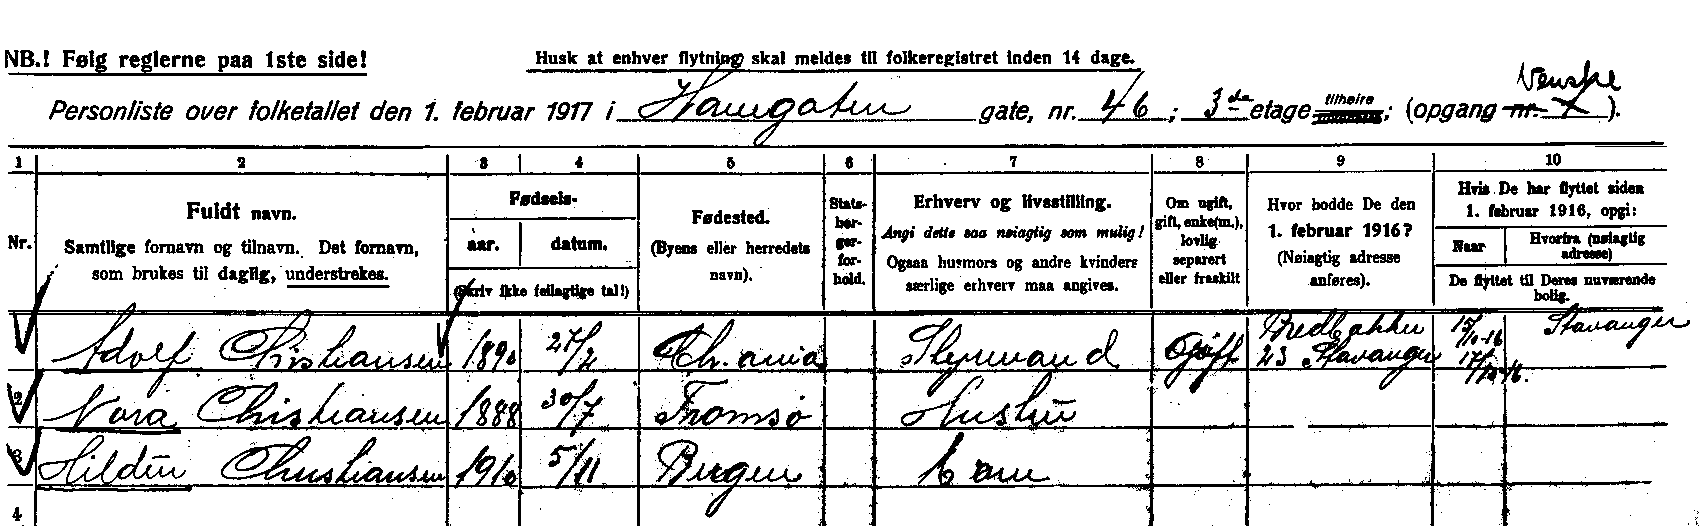 NB.! Følg reglerne paa 1ste side!
Husk at enhver flytning skal meldes til folkeregistret inden 14 dage.
Venstre
Personliste over folketallet den 1. februar 1917 i Havnegaten gate, nr. 46; 3de etage tilhøire; (opgang nr. ).
1 2 3 4 5 6 7 8 9 10
Nr.
Fuldt navn.
Samtlige fornavn og tilnavn. Det fornavn,
som brukes til daglig, understrekes.
Fødsels-
aar. datum.
(Skriv ikke feilagtige tal!)
Fødested.
(Byens eller herredets
navn).
Stats-
bor-
ger-
for-
hold.
Erhverv og livsstilling.
Angi dette saa nøiagtig som mulig!
Ogsaa husmors og andre kvinders
særlige erhverv maa angives.
Om ugift,
gift, enke(m.),
lovlig
separert
eller fraskilt
Hvor bodde De den
1. februar 1916?
(Nøiagtig adresse
anføres).
Hvis De har flyttet siden
1. februar 1916, opgi:
Naar Hvorfra (nøiagtig
adresse)
De flyttet til Deres nuværende
bolig.
Adolf Christiansen 1890 27/2 Kr.ania Styrmand Gift Bredbakken 23 Stavanger 15/10-16 17/10-16. Stavanger
2 Nora Christiansen 1888 30/7 Tromsø Hustru
3 Hildur Christiansen 1910 5/11 Bergen barn
4